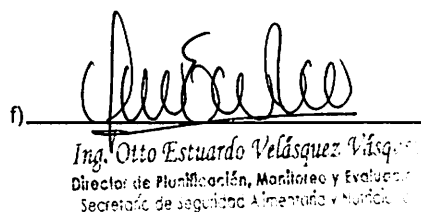 f)
Ing. Otto Estuardo Velásquez Vásq
Director de Planificación, Monitoreo y Evaluac
Secretaría de Seguridad Alimentaria y Nutricio